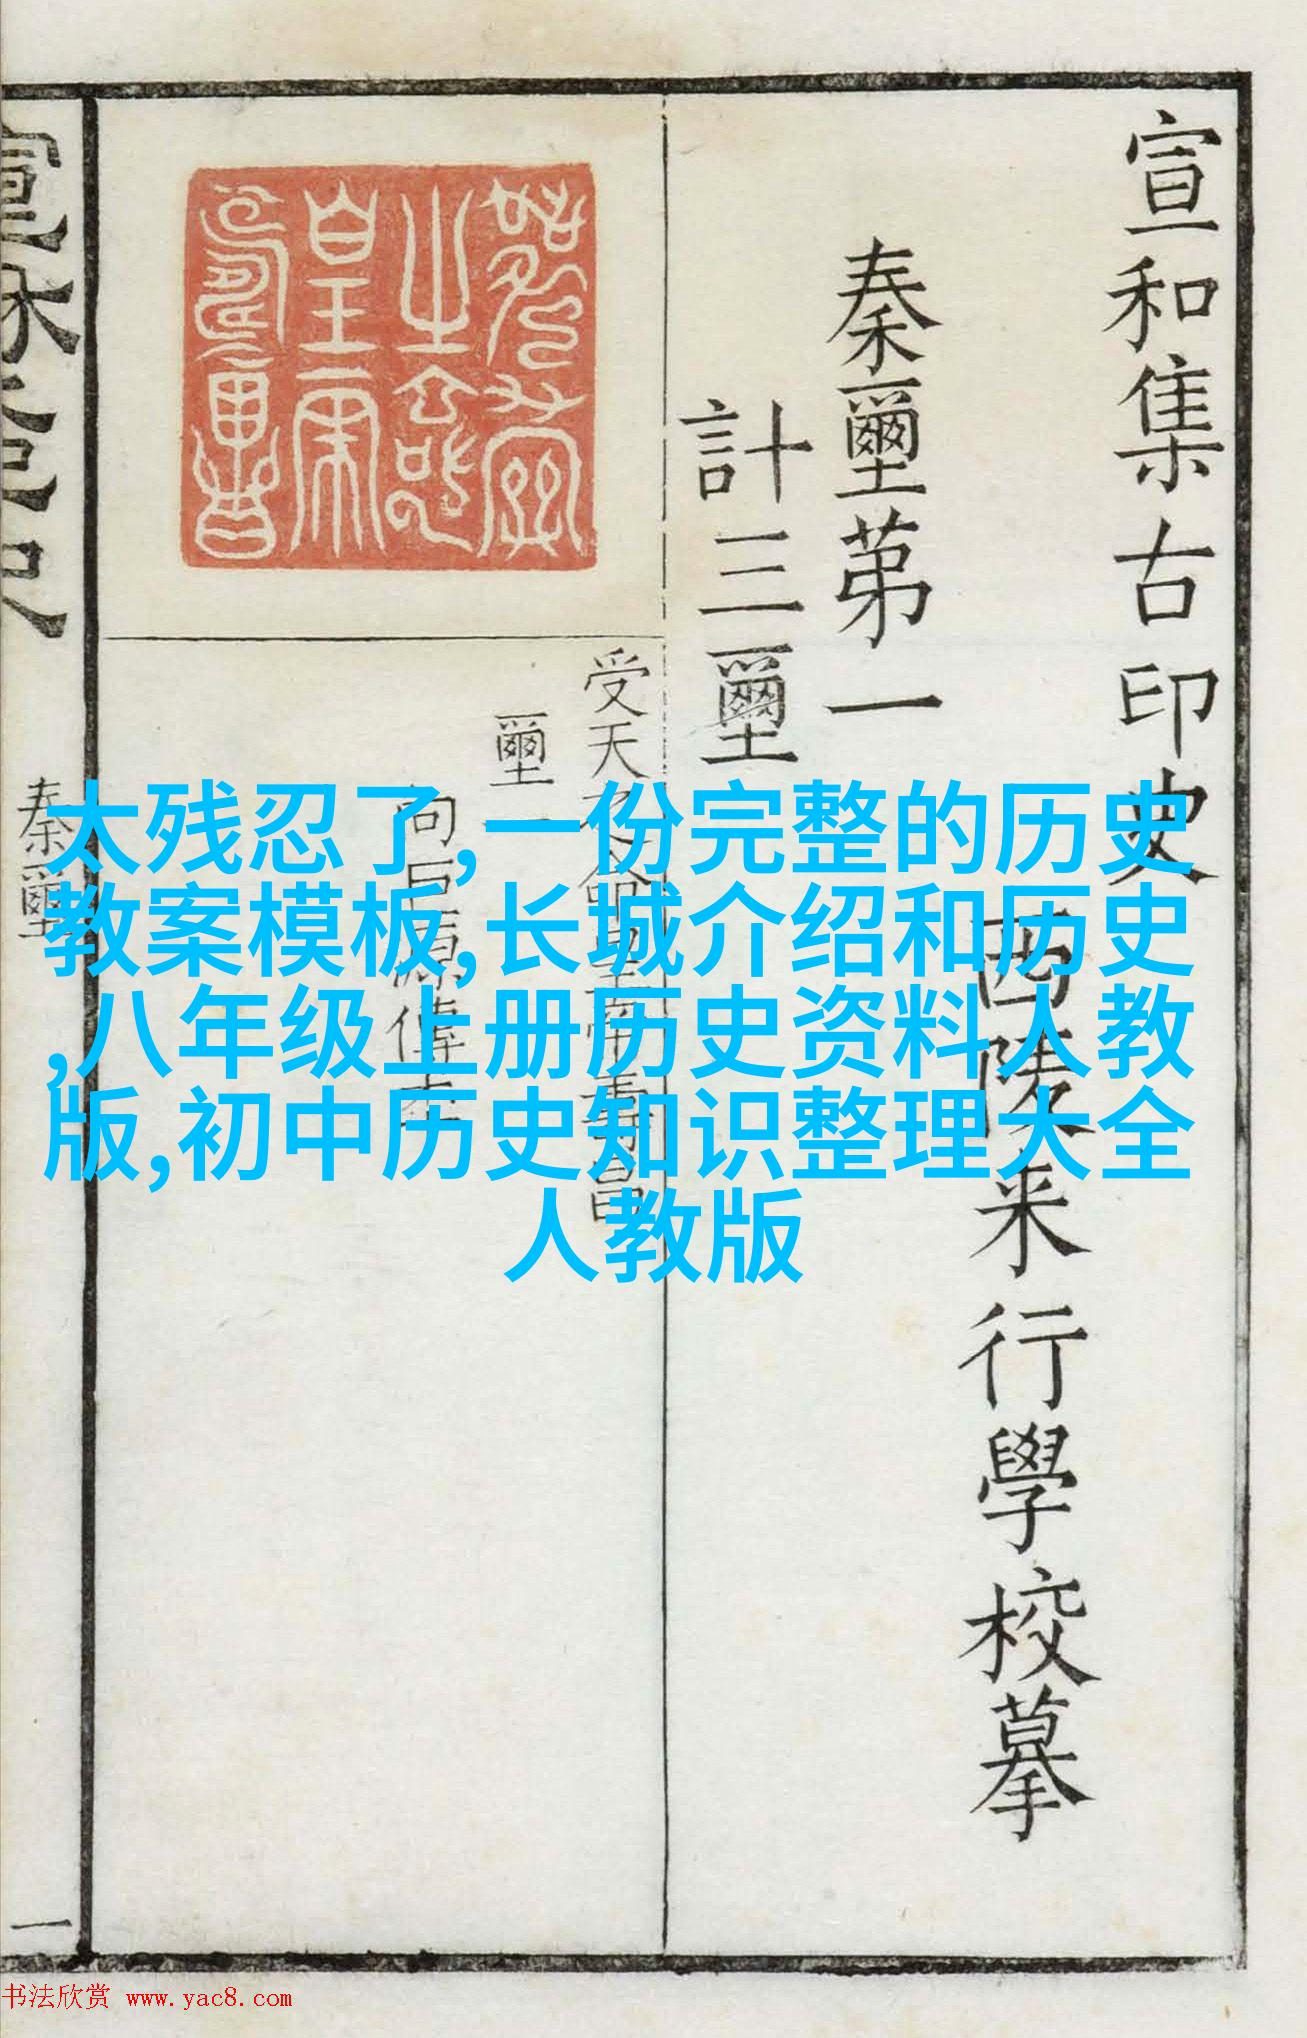 宣和集古印史
西陵来行學校摹
秦璽苐一
計三璽
受天之命皇帝壽昌
璽
向巨源傳本
秦璽
一
太残忍了,一份完整的历史
教案模板,长城介绍和历史
,八年级上册历史资料人教
版,初中历史知识整理大全
人教版
书法欣赏 www.yac8.com